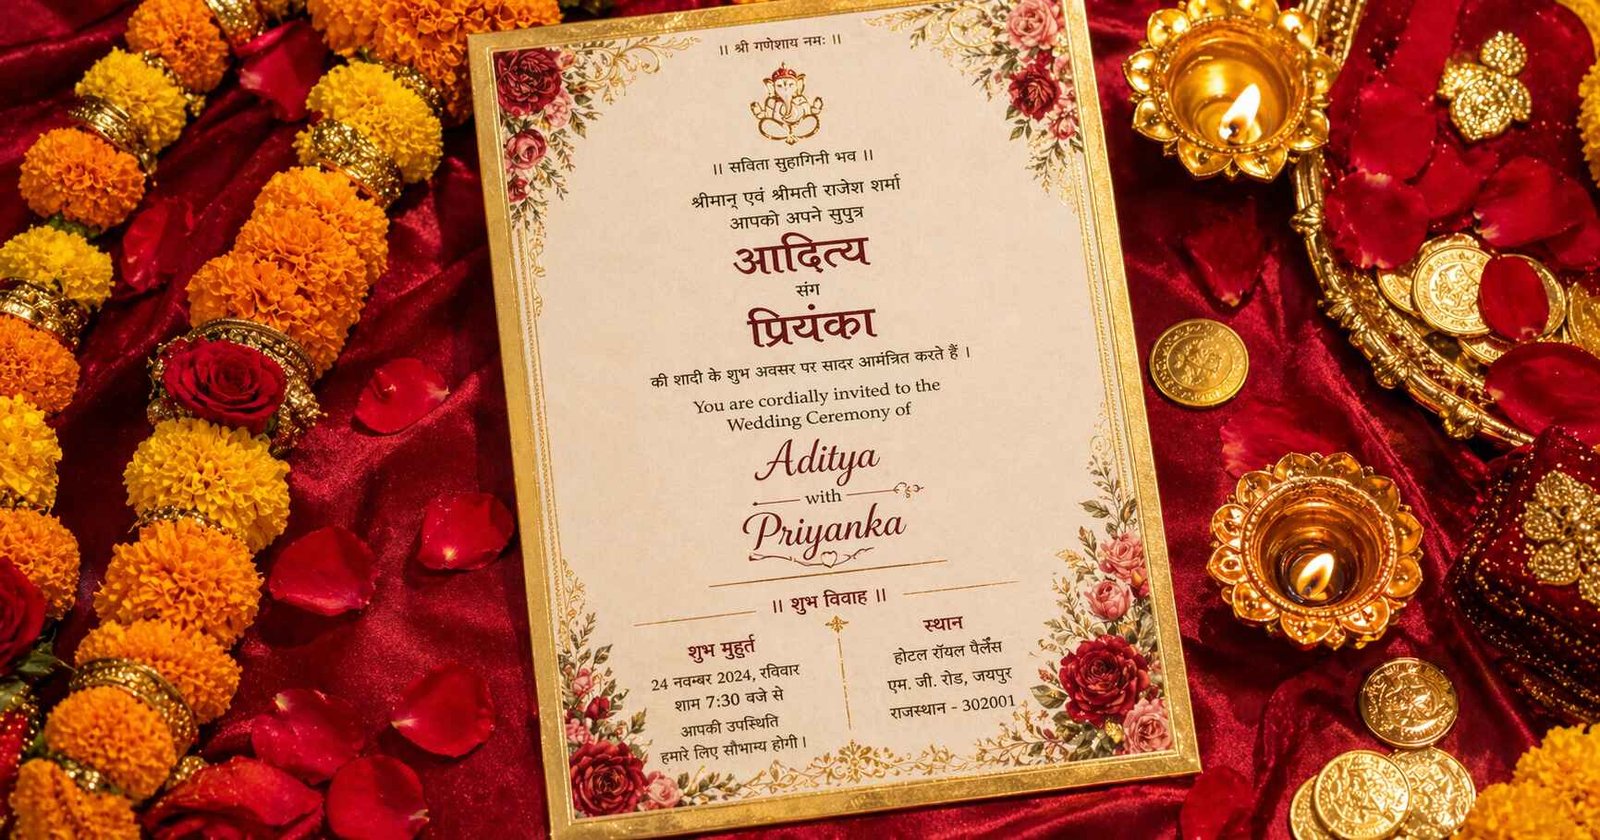 ।। श्री गणेशाय नमः ।।
।। सविता सुहागिनी भव ।।
श्रीमान् एवं श्रीमती राजेश शर्मा
आपको अपने सुपुत्र
आदित्य
संग
प्रियंका
की शादी के शुभ अवसर पर सादर आमंत्रित करते हैं ।
You are cordially invited to the
Wedding Ceremony of
Aditya
with
Priyanka
।। शुभ विवाह ।।
शुभ मुहुर्त
24 नवम्बर 2024, रविवार
शाम 7:30 बजे से
आपकी उपस्थिति
हमारे लिए सौभाग्य होगी ।
स्थान
होटल रॉयल पैलेंस
एम. जी. रोड, जयपुर
राजस्थान - 302001